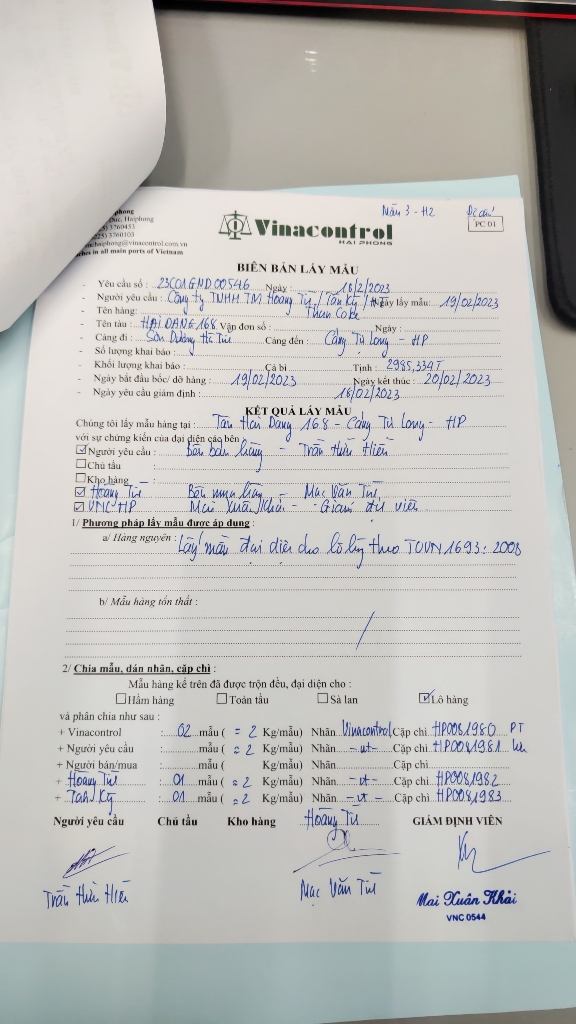 Mẫu 3 - H2
PC 01
Haiphong
3760453
3760103
nchaiphong@vinacontrol.com.vn
ches in all main ports of Vietnam
Vinacontrol
HAI PHONG
BIÊN BẢN LẤY MẪU
- Yêu cầu số : 23C01GND00546 Ngày : 18/2/2023
- Người yêu cầu : Công ty TNHH TM Hoàng Tú / Tân Kỳ / Ngày lấy mẫu: 19/02/2023
- Tên hàng: Than Coke
- Tên tàu : HẢI DANG 168 Vận đơn số : Ngày :
- Cảng đi : Sơn Dương Hà Tĩnh Cảng đến : Cảng Tự Long - HP
- Số lượng khai báo :
- Khối lượng khai báo : Cả bì Tịnh : 2985,334T
- Ngày bắt đầu bốc/ dỡ hàng : 19/02/2023 Ngày kết thúc : 20/02/2023
- Ngày yêu cầu giám định : 18/02/2023
KẾT QUẢ LẤY MẪU
Chúng tôi lấy mẫu hàng tại : Tàu Hải Dang 168 - Cảng Tự Long - HP
với sự chứng kiến của đại diện các bên
Người yêu cầu : Bên bán hàng - Trần Hữu Hiền
Chủ tầu :
Kho hàng :
Hoàng Tú Bên mua hàng - Mạc Văn Tú
VNC HP Mai Xuân Khải - Giám định viên
1/ Phương pháp lấy mẫu được áp dụng :
a/ Hàng nguyên : Lấy mẫu đại diện cho lô lý theo TCVN 1693: 2008
b/ Mẫu hàng tổn thất : /
2/ Chia mẫu, dán nhãn, cặp chì :
Mẫu hàng kể trên đã được trộn đều, đại diện cho :
Hầm hàng Toàn tầu Sà lan Lô hàng
và phân chia như sau :
+ Vinacontrol : 02 mẫu ( = 2 Kg/mẫu) Nhãn Vinacontrol Cặp chì HP0081980 PT
+ Người yêu cầu : mẫu ( = 2 Kg/mẫu) Nhãn - nt - Cặp chì HP0081981 lưu
+ Người bán/mua : mẫu ( Kg/mẫu) Nhãn Cặp chì
+ Hoàng Tú : 01 mẫu ( = 2 Kg/mẫu) Nhãn - nt - Cặp chì HP0081982
+ Tân Kỳ : 01 mẫu ( = 2 Kg/mẫu) Nhãn - nt - Cặp chì HP0081983
Người yêu cầu Chủ tầu Kho hàng Hoàng Tú GIÁM ĐỊNH VIÊN
Trần Hữu Hiền Mạc Văn Tú Mai Xuân Khải
VNC 0544